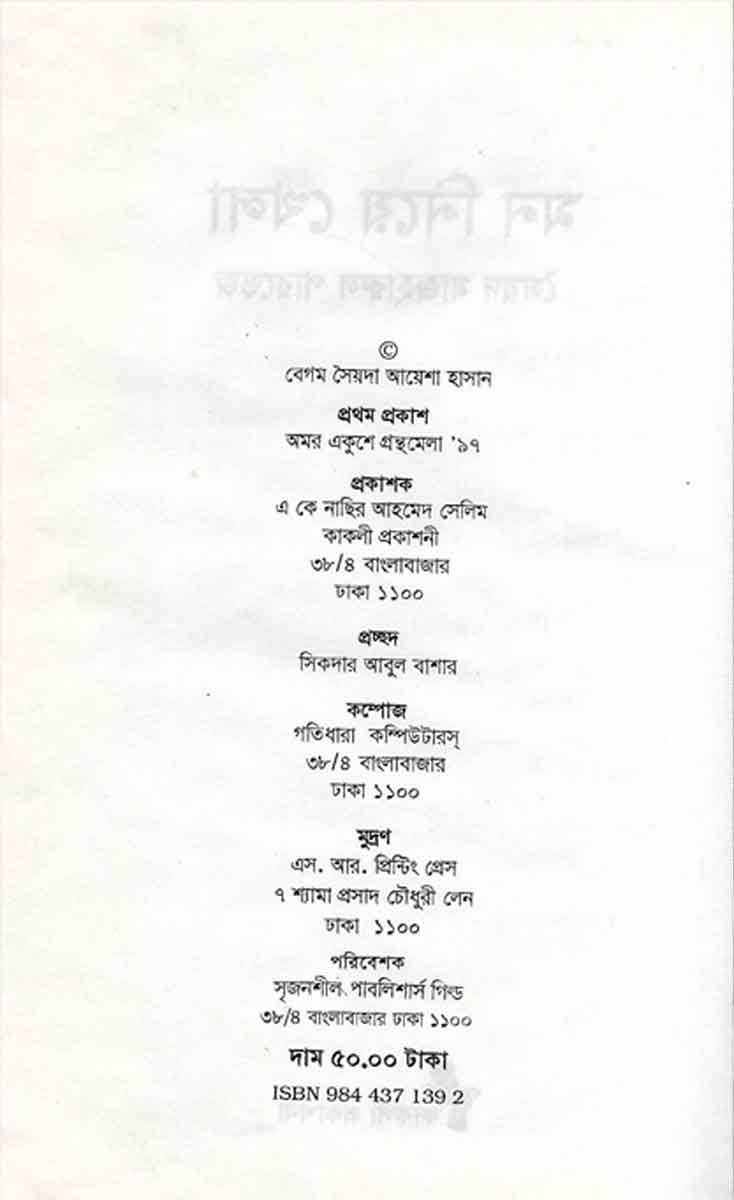 ©
বেগম সৈয়দা আয়েশা হাসান
প্রথম প্রকাশ
অমর একুশে গ্রন্থমেলা '৯৭
প্রকাশক
এ কে নাছির আহমেদ সেলিম
কাকলী প্রকাশনী
৩৮/৪ বাংলাবাজার
ঢাকা ১১০০
প্রচ্ছদ
সিকদার আবুল বাশার
কম্পোজ
গতিধারা কম্পিউটারস্
৩৮/৪ বাংলাবাজার
ঢাকা ১১০০
মুদ্রণ
এস. আর. প্রিন্টিং প্রেস
৭ শ্যামা প্রসাদ চৌধুরী লেন
ঢাকা ১১০০
পরিবেশক
সৃজনশীল পাবলিশার্স গিল্ড
৩৮/৪ বাংলাবাজার ঢাকা ১১০০
দাম ৫০.০০ টাকা
ISBN 984 437 139 2